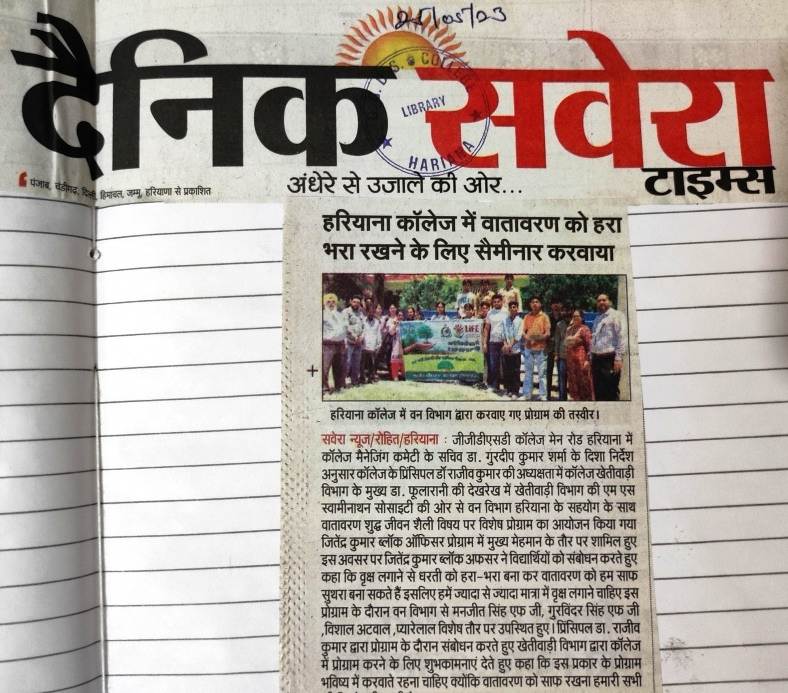 25/05/23
दैनिक सवेरा
टाइम्स
S. COLLEGE
LIBRARY
HARIANA
पंजाब, चंडीगढ़, दिल्ली, हिमाचल, जम्मू, हरियाणा से प्रकाशित
अंधेरे से उजाले की ओर...
हरियाना कॉलेज में वातावरण को हरा
भरा रखने के लिए सैमीनार करवाया
LiFE
हरियाना कॉलेज में वन विभाग द्वारा करवाए गए प्रोग्राम की तस्वीर।
सवेरा न्यूज/रोहित/हरियाना : जीजीडीएसडी कॉलेज मेन रोड हरियाना में
कॉलेज मैनेजिंग कमेटी के सचिव डा. गुरदीप कुमार शर्मा के दिशा निर्देश
अनुसार कॉलेज के प्रिंसिपल डॉ राजीव कुमार की अध्यक्षता में कॉलेज खेतीवाड़ी
विभाग के मुख्य डा. फूलारानी की देखरेख में खेतीवाड़ी विभाग की एम एस
स्वामीनाथन सोसाइटी की ओर से वन विभाग हरियाना के सहयोग के साथ
वातावरण शुद्ध जीवन शैली विषय पर विशेष प्रोग्राम का आयोजन किया गया
जितेंद्र कुमार ब्लॉक ऑफिसर प्रोग्राम में मुख्य मेहमान के तौर पर शामिल हुए
इस अवसर पर जितेंद्र कुमार ब्लॉक अफसर ने विद्यार्थियों को संबोधन करते हुए
कहा कि वृक्ष लगाने से धरती को हरा-भरा बना कर वातावरण को हम साफ
सुथरा बना सकते हैं इसलिए हमें ज्यादा से ज्यादा मात्रा में वृक्ष लगाने चाहिए इस
प्रोग्राम के दौरान वन विभाग से मनजीत सिंह एफ जी, गुरविंदर सिंह एफ जी
,विशाल अटवाल ,प्यारेलाल विशेष तौर पर उपस्थित हुए। प्रिंसिपल डा. राजीव
कुमार द्वारा प्रोग्राम के दौरान संबोधन करते हुए खेतीवाड़ी विभाग द्वारा कॉलेज
में प्रोग्राम करने के लिए शुभकामनाएं देते हुए कहा कि इस प्रकार के प्रोग्राम
भविष्य में करवाते रहना चाहिए क्योंकि वातावरण को साफ रखना हमारी सभी